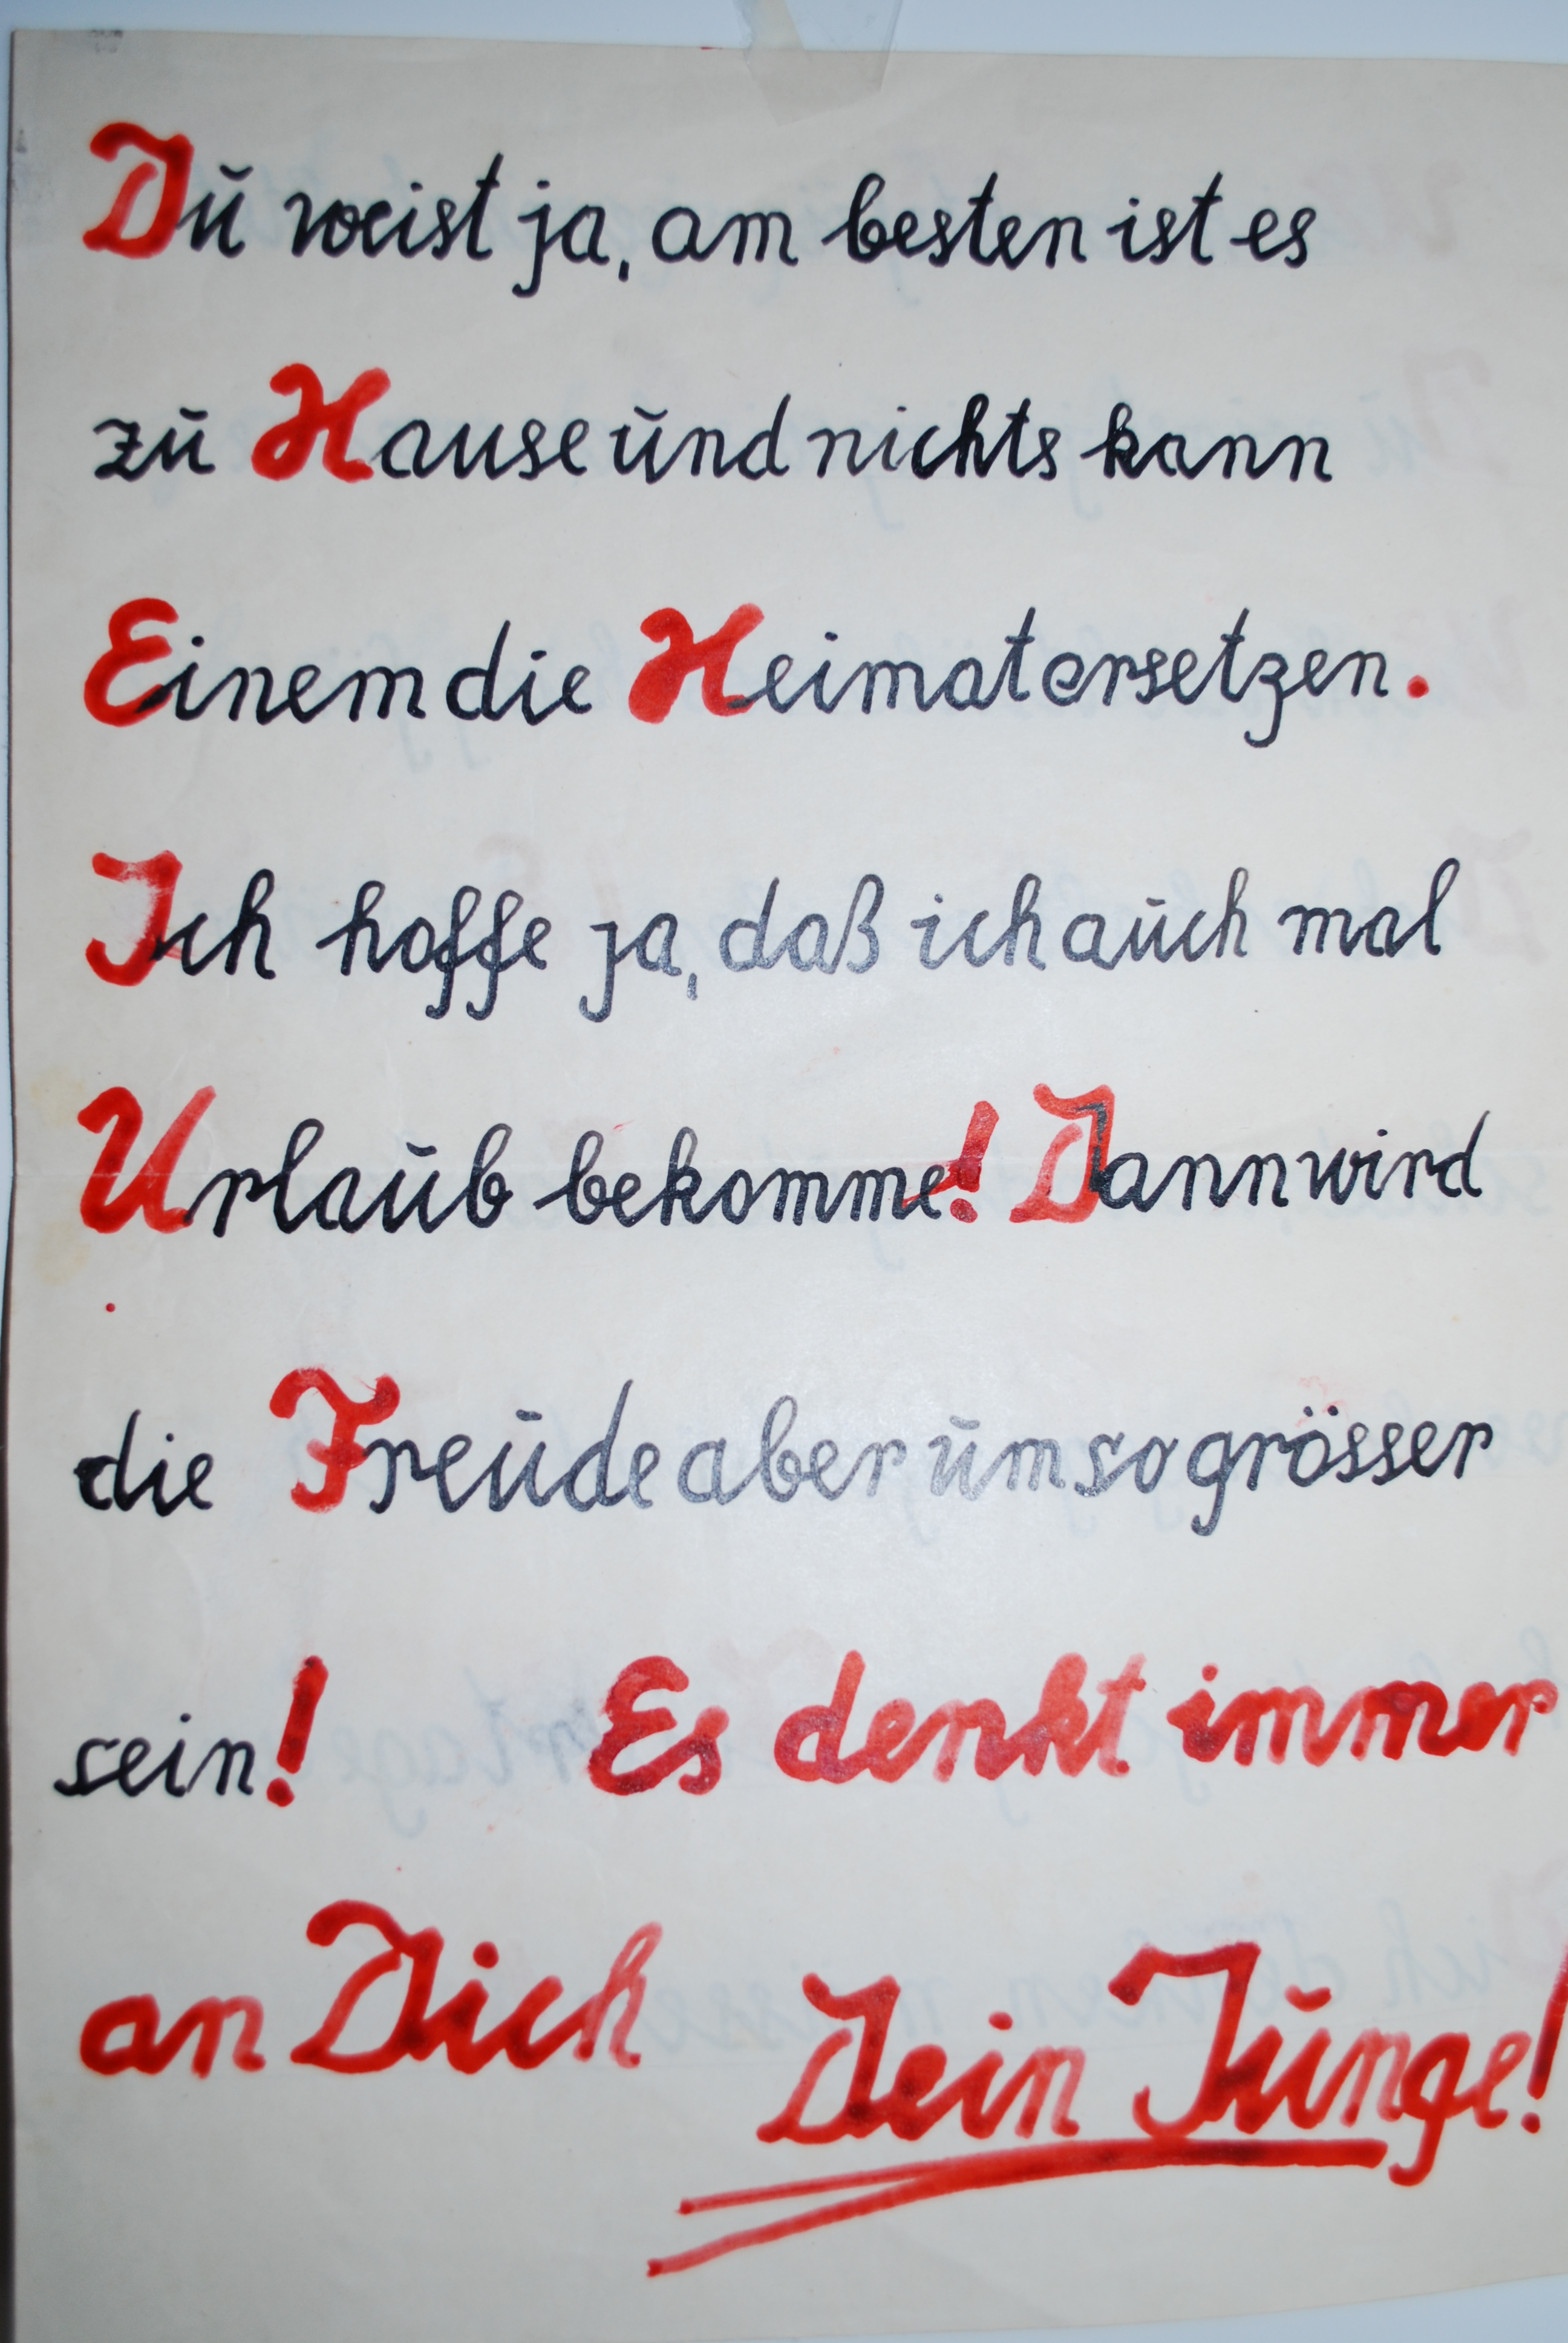 Du weist ja, am besten ist es
zu Hause und nichts kann
Einem die Heimat ersetzen.
Ich hoffe ja, daß ich auch mal
Urlaub bekomme! Dann wird
die Freude aber um so grösser
sein! Es denkt immer
an Dich Dein Junge!